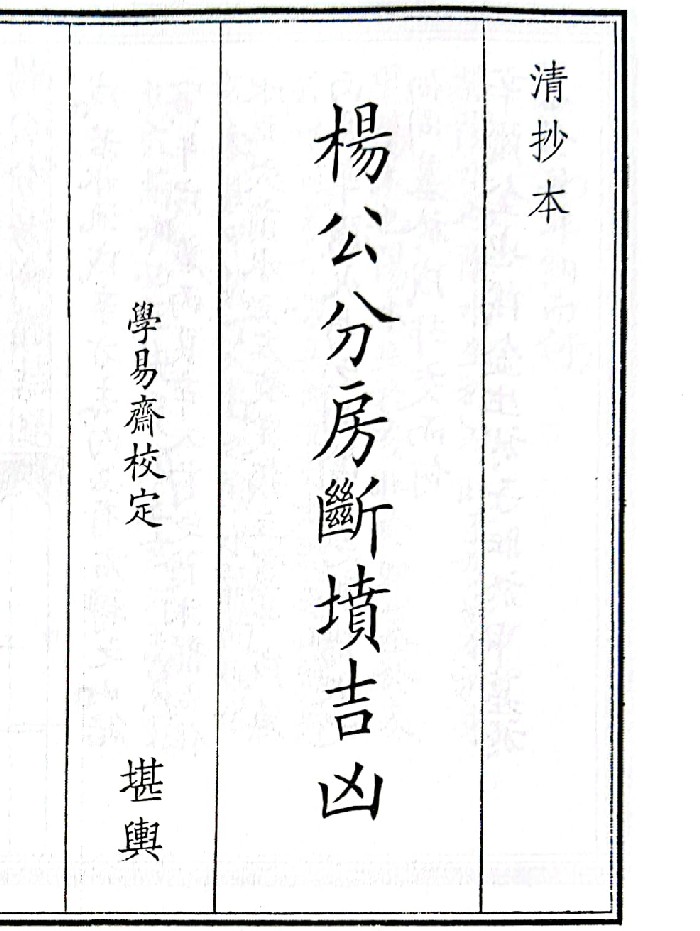 清抄本
楊公分房斷墳吉凶
學易齋校定
堪輿